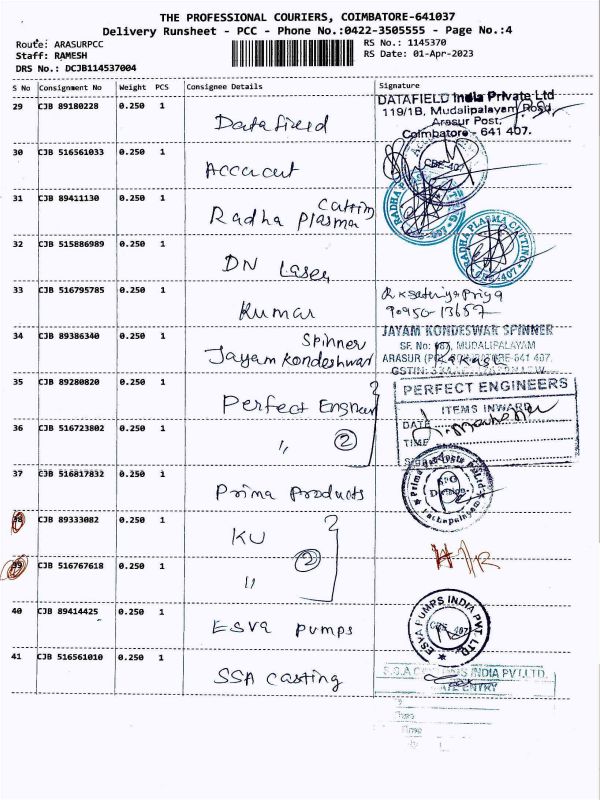 THE PROFESSIONAL COURIERS, COIMBATORE-641037
Delivery Runsheet - PCC - Phone No.:0422-3505555 - Page No.:4
Route: ARASURPCC
Staff: RAMESH
DRS No.: DCJB114537004
RS No.: 1145370
RS Date: 01-Apr-2023
S No Consignment No Weight PCS Consignee Details Signature
29 CJB 89180228 0.250 1 Datafield
DATAFIELD India Private Ltd
119/1B, Mudalipalayam Road,
Arasur Post,
Coimbatore - 641 407.
30 CJB 516561033 0.250 1 Accucut
CBE-407
31 CJB 89411130 0.250 1 Radha Plasma Cutting
RADHA PLASMA CUTTING
32 CJB 515886989 0.250 1 DN Laser
RADHA PLASMA CUTTING
33 CJB 516795785 0.250 1 Kumar
R K Sathiya Priya
90950-13657
34 CJB 89386340 0.250 1 Jayam Kondeshwar Spinner
JAYAM KONDESWAR SPINNER
SF. No: MUDALIPALAYAM
ARASUR 641 407.
GSTIN:
35 CJB 89280820 0.250 1 Perfect Engineer
PERFECT ENGINEERS
ITEMS INWARD
DATE
TIME
36 CJB 516723802 0.250 1 " 2
37 CJB 516817832 0.250 1 Prima Products
38 CJB 89333082 0.250 1 KU
39 CJB 516767618 0.250 1 " 2
40 CJB 89414425 0.250 1 ESVA Pumps
ESVA PUMPS INDIA PVT. LTD
41 CJB 516561010 0.250 1 SSA Casting
S.S.A INDIA PVT.LTD.
DATE ENTRY